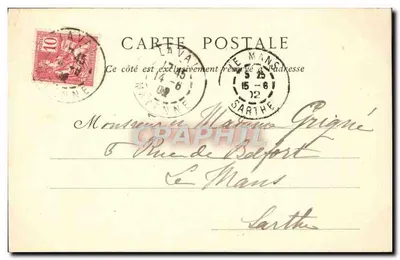 CARTE POSTALE
Ce côté est exclusivement réservé à l'adresse
10
LAVAL
17 45
14 - 6
02
MAYENNE
LE MANS
5 25
15 - 6
02
SARTHE
Monsieur et Madame Grigné
5 Rue de Belfort
Le Mans
Sarthe